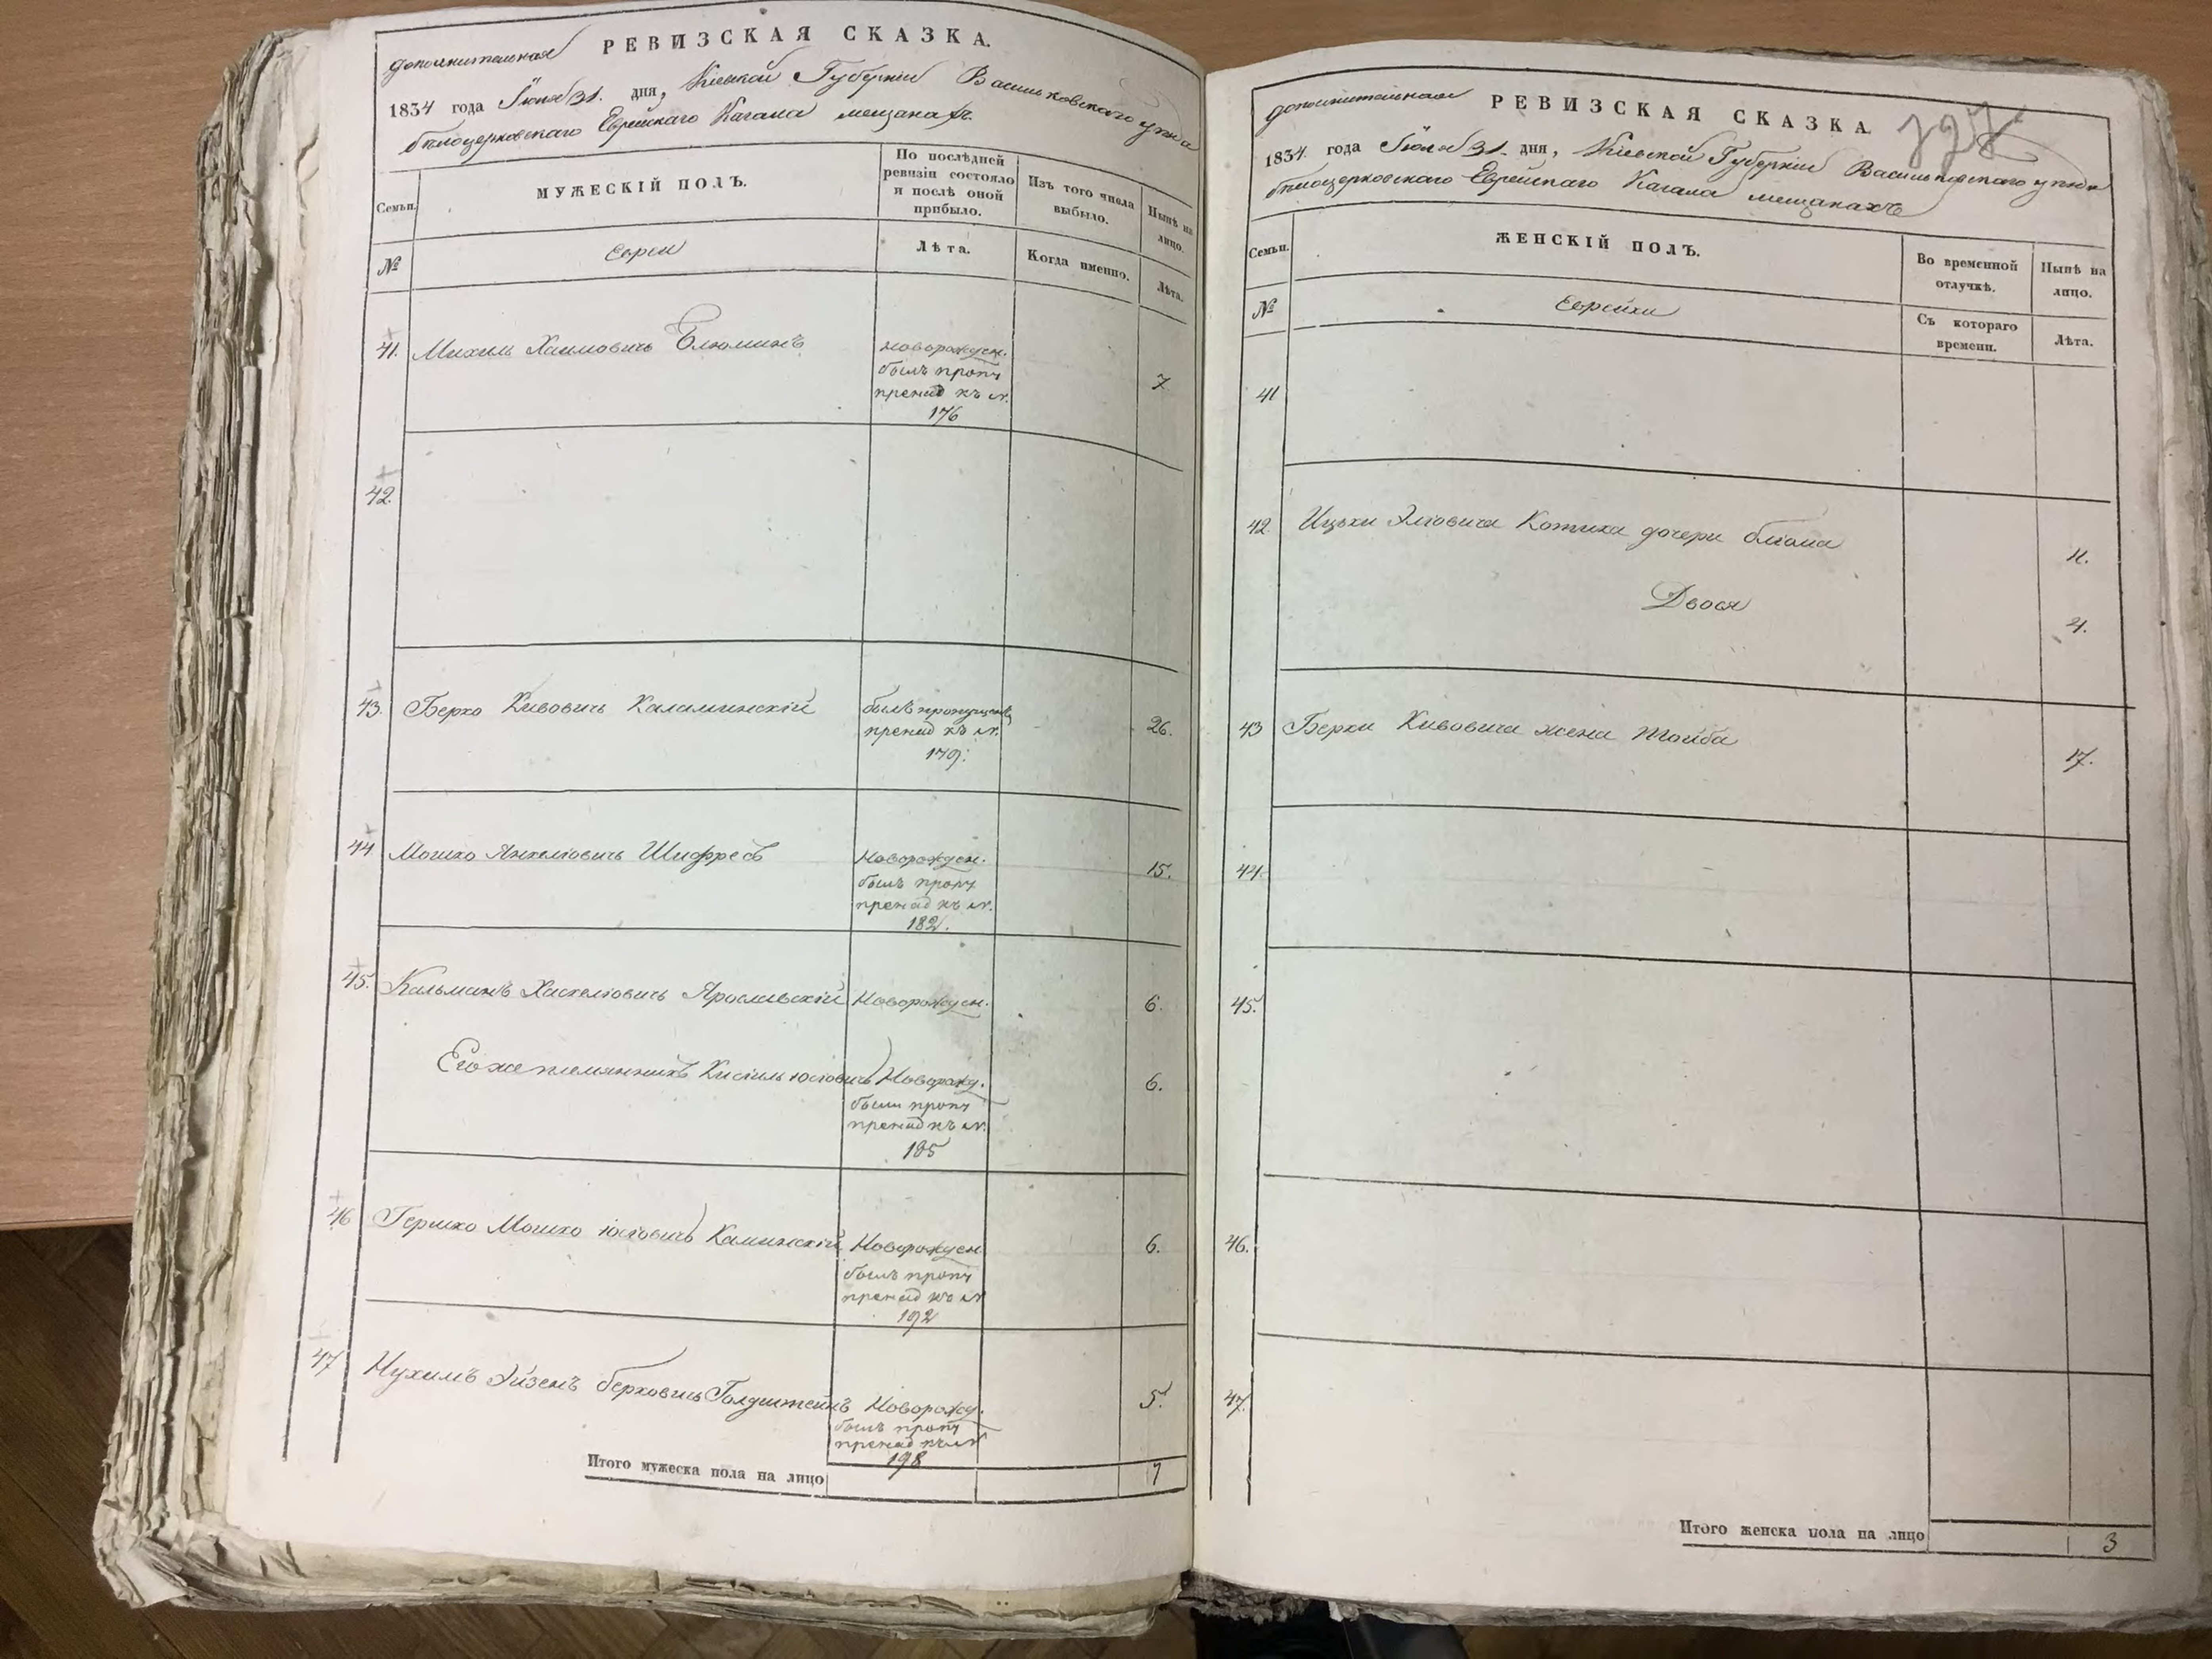 дополнительная РЕВИЗСКАЯ СКАЗКА.
1834 года Іюля 31. дня, Кіевской Губерніи Васильковского уѣзда
бѣлоцерковскаго Еврейскаго Кагала мещанахъ
Семьи.
МУЖЕСКІЙ ПОЛЪ.
По послѣдней ревизіи состояло и послѣ оной прибыло.
Изъ того числа выбыло.
Нынѣ на лицо.
№
евреи
Лѣта.
Когда именно.
Лѣта.
41. Михель Хаимовичь Блюминъ новорожден. 7
былъ проп
принад къ №.
176
42.
43. Берко Кивовичь Каламинскій былъ пропущенъ 26.
принад къ №.
179.
44 Мошко Янкелiовичь Шифресъ Новорожден. 15.
былъ проп
принад къ №.
182.
45. Кальманъ Хаскелiовичь Ярославскій Новорожден. 6.
Его же племянникъ Кисiиль Iосiовичь Новорожд. 6.
были проп
принад къ №.
185
46 Гершко Мошко Iосiовичь Каминскій Новорожден 6.
былъ проп
принад къ №
192
47 Нухимъ Эйзенъ берковичь Голдштейнъ Новорожд. 5.
былъ проп
принад къ №
198
Итого мужеска пола на лицо 7
727
дополнительная РЕВИЗСКАЯ СКАЗКА
1834. года Іюля 31. дня, Кіевской Губерніи Васильковскаго уѣзда
бѣлоцерковскаго Еврейскаго Кагала мещанахъ
Семьи.
ЖЕНСКІЙ ПОЛЪ.
Во временной отлучкѣ.
Нынѣ на лицо.
№
Еврейки
Съ котораго времени.
Лѣта.
41
42. Ицьки Элiовича Котика дочери блюма 11.
Двося 4.
43 Берки Кивовича жена Тойба 17.
44.
45.
46.
47.
Итого женска пола на лицо 3